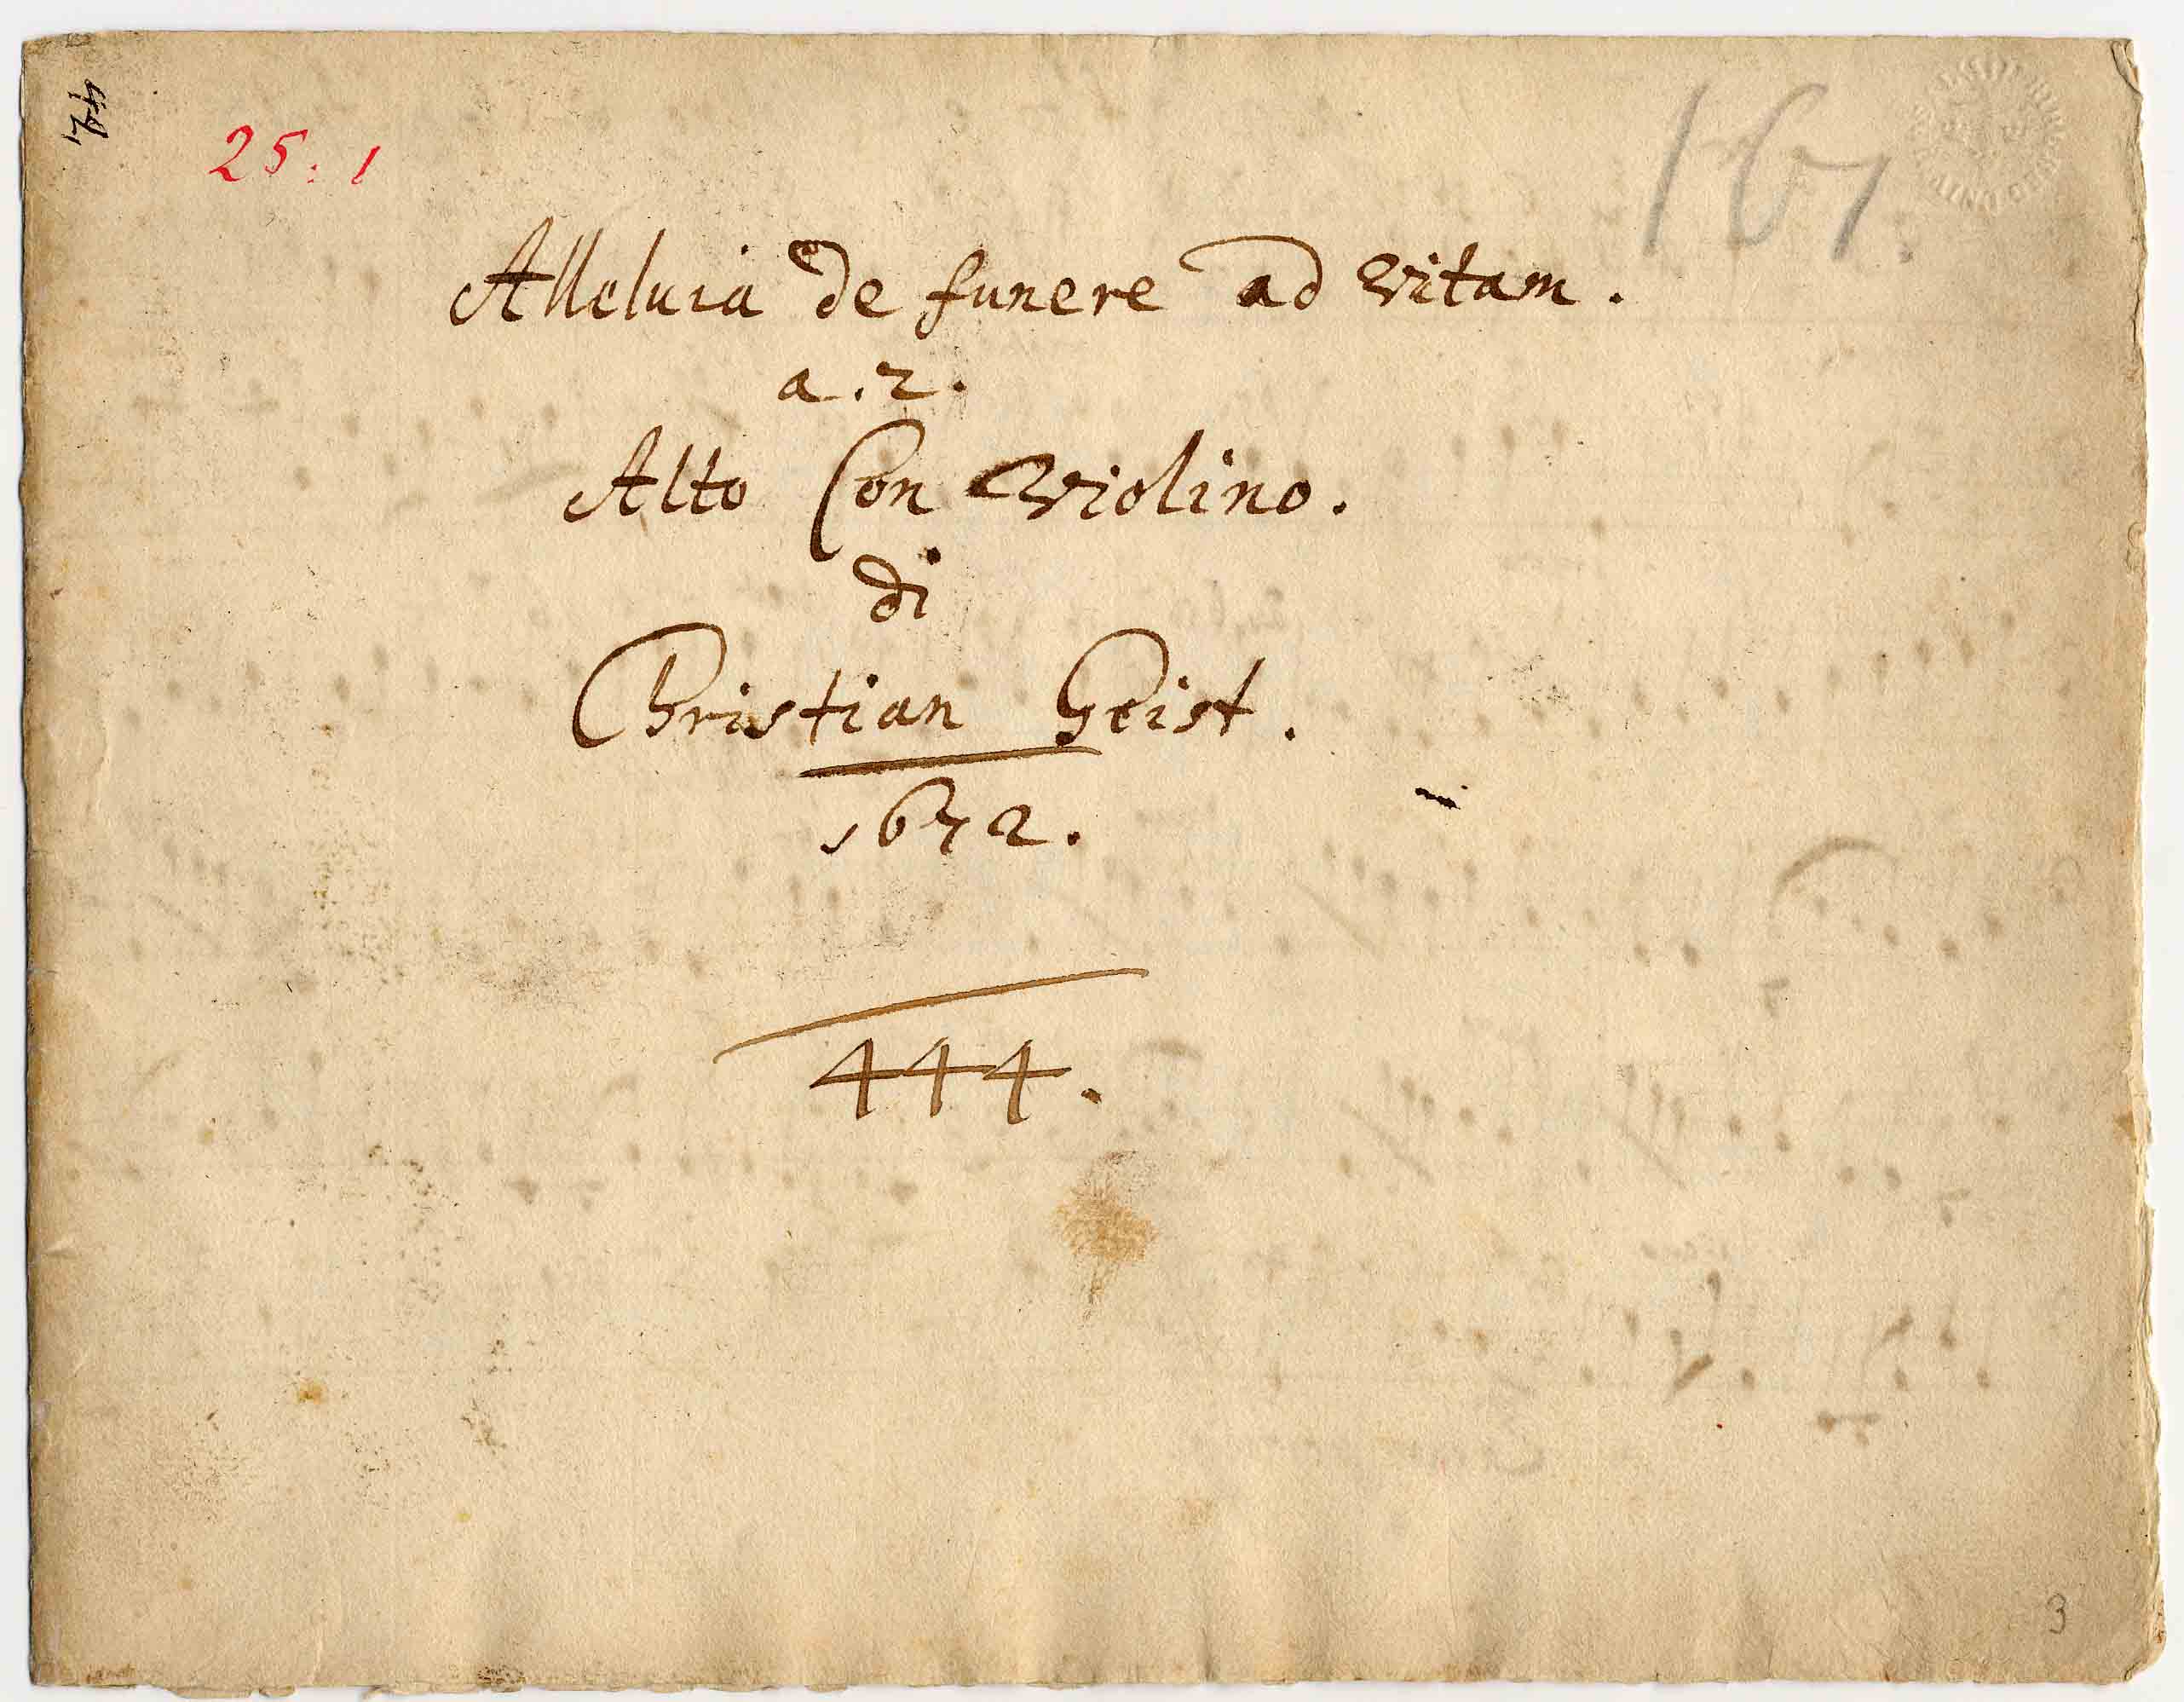 42
25:1
161.
Alleluia de funere ad vitam.
a.2.
Alto Con Violino.
di
Christian Geist.
1672.
444.
3